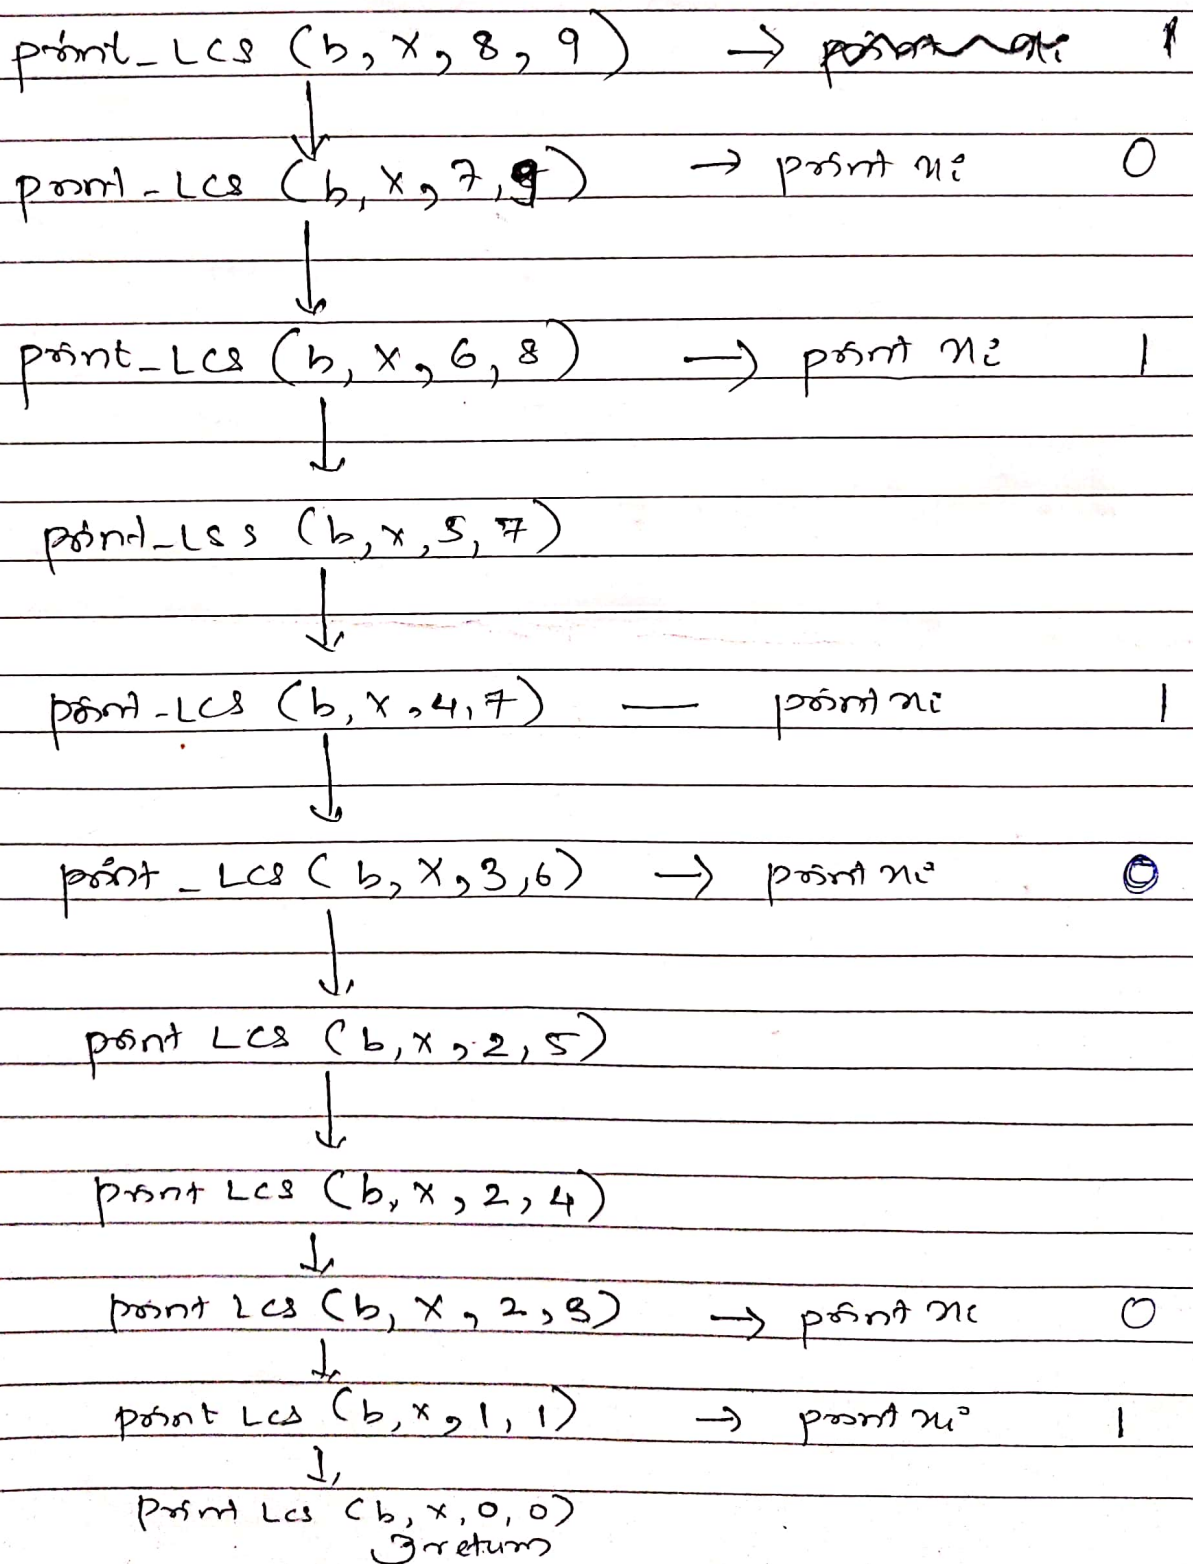 print_LCS (b, x, 8, 9) → 1
↓
print_LCS (b, x, 7, 9) → print xi 0
↓
print_LCS (b, x, 6, 8) → print xi 1
↓
print_LSS (b, x, 5, 7)
↓
print_LCS (b, x, 4, 7) — print xi 1
↓
print_LCS (b, x, 3, 6) → print xi 0
↓
print LCS (b, x, 2, 5)
↓
print LCS (b, x, 2, 4)
↓
print LCS (b, x, 2, 3) → print xi 0
↓
print LCS (b, x, 1, 1) → print xi 1
↓
print LCS (b, x, 0, 0)
return